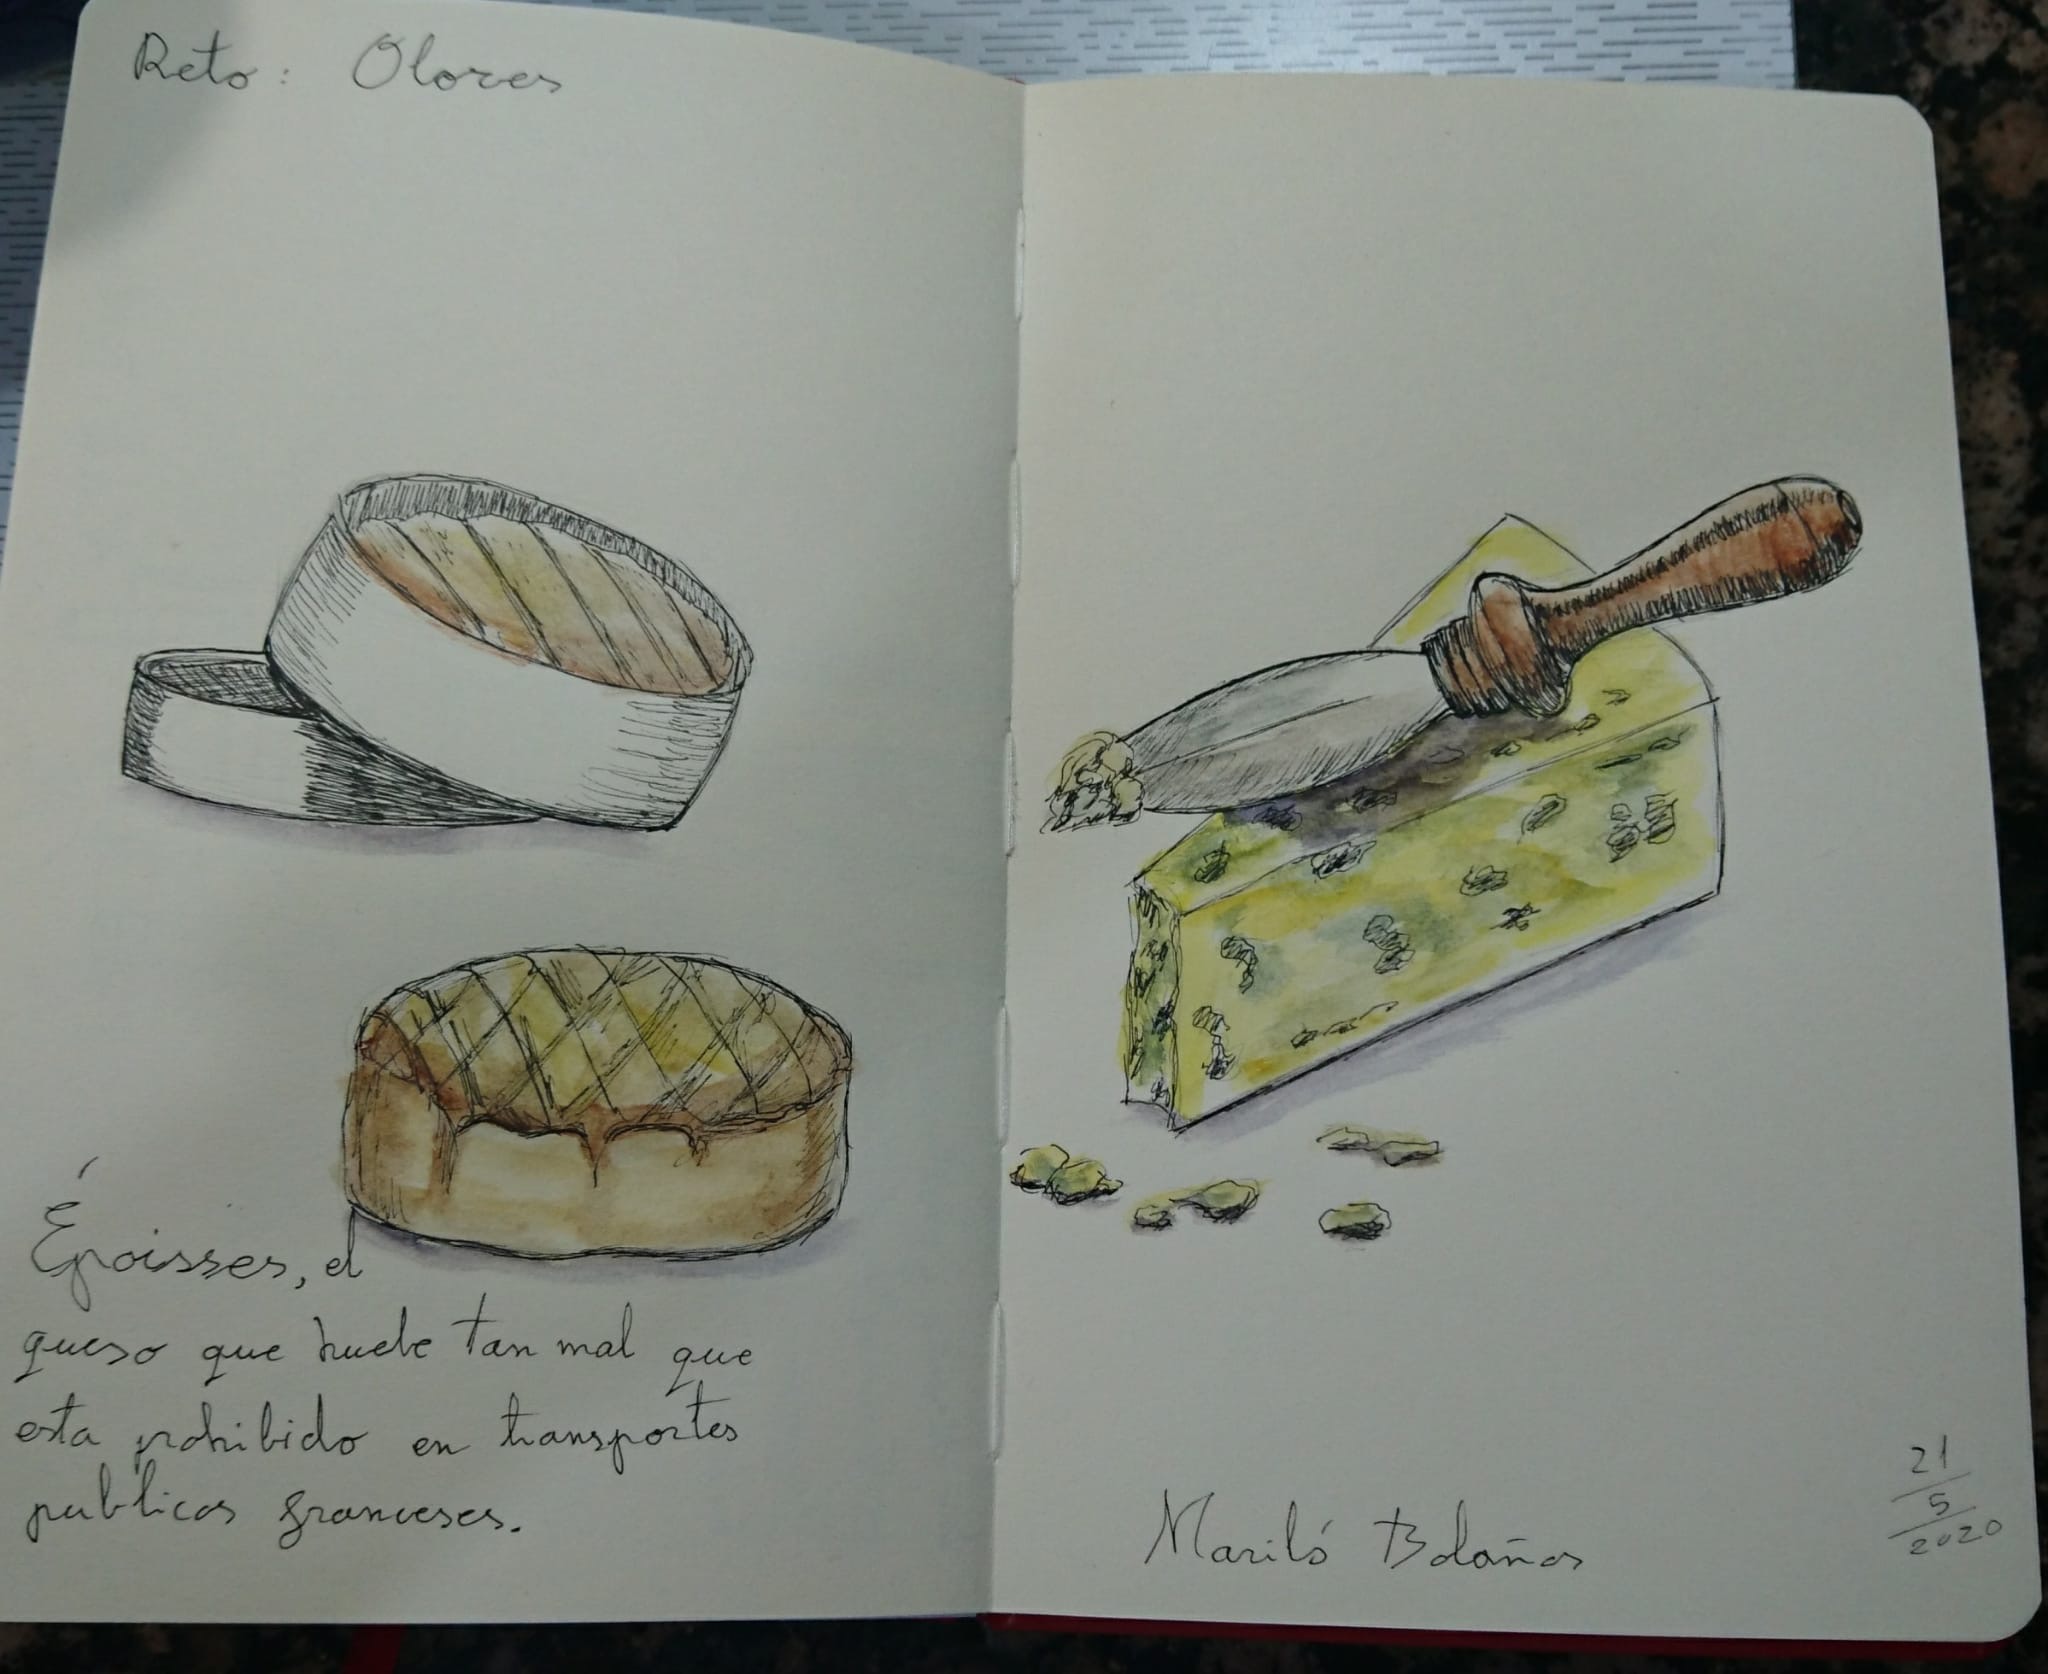 Reto: Olores
Époisses, el
queso que huele tan mal que
esta prohibido en transportes
publicos franceses.
Mariló Bolaños
21
5
2020